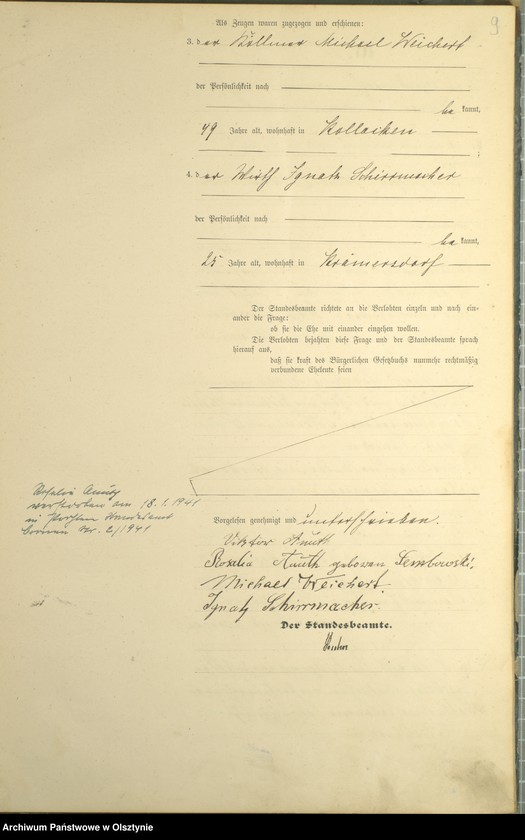 9
Als Zeugen waren zugezogen und erschienen:
3. der Köllmer Michael Weichert
der Persönlichkeit nach
bekannt,
49 Jahre alt, wohnhaft in Kollacken
4. der Wirth Ignatz Schirrmacher
der Persönlichkeit nach
bekannt,
25 Jahre alt, wohnhaft in Krämersdorf
Der Standesbeamte richtete an die Verlobten einzeln und nach ein-
ander die Frage:
ob sie die Ehe mit einander eingehen wollen.
Die Verlobten bejahten diese Frage und der Standesbeamte sprach
hierauf aus,
daß sie kraft des Bürgerlichen Gesetzbuchs nunmehr rechtmäßig
verbundene Eheleute seien
Rosalia
verstorben am 18.1.1941
in Standesamt
Nr. 2/1941
Vorgelesen genehmigt und unterschrieben.
Viktor
Rosalia geboren Dembowski.
Michael Weichert.
Ignatz Schirrmacher.
Der Standesbeamte.
Archiwum Państwowe w Olsztynie